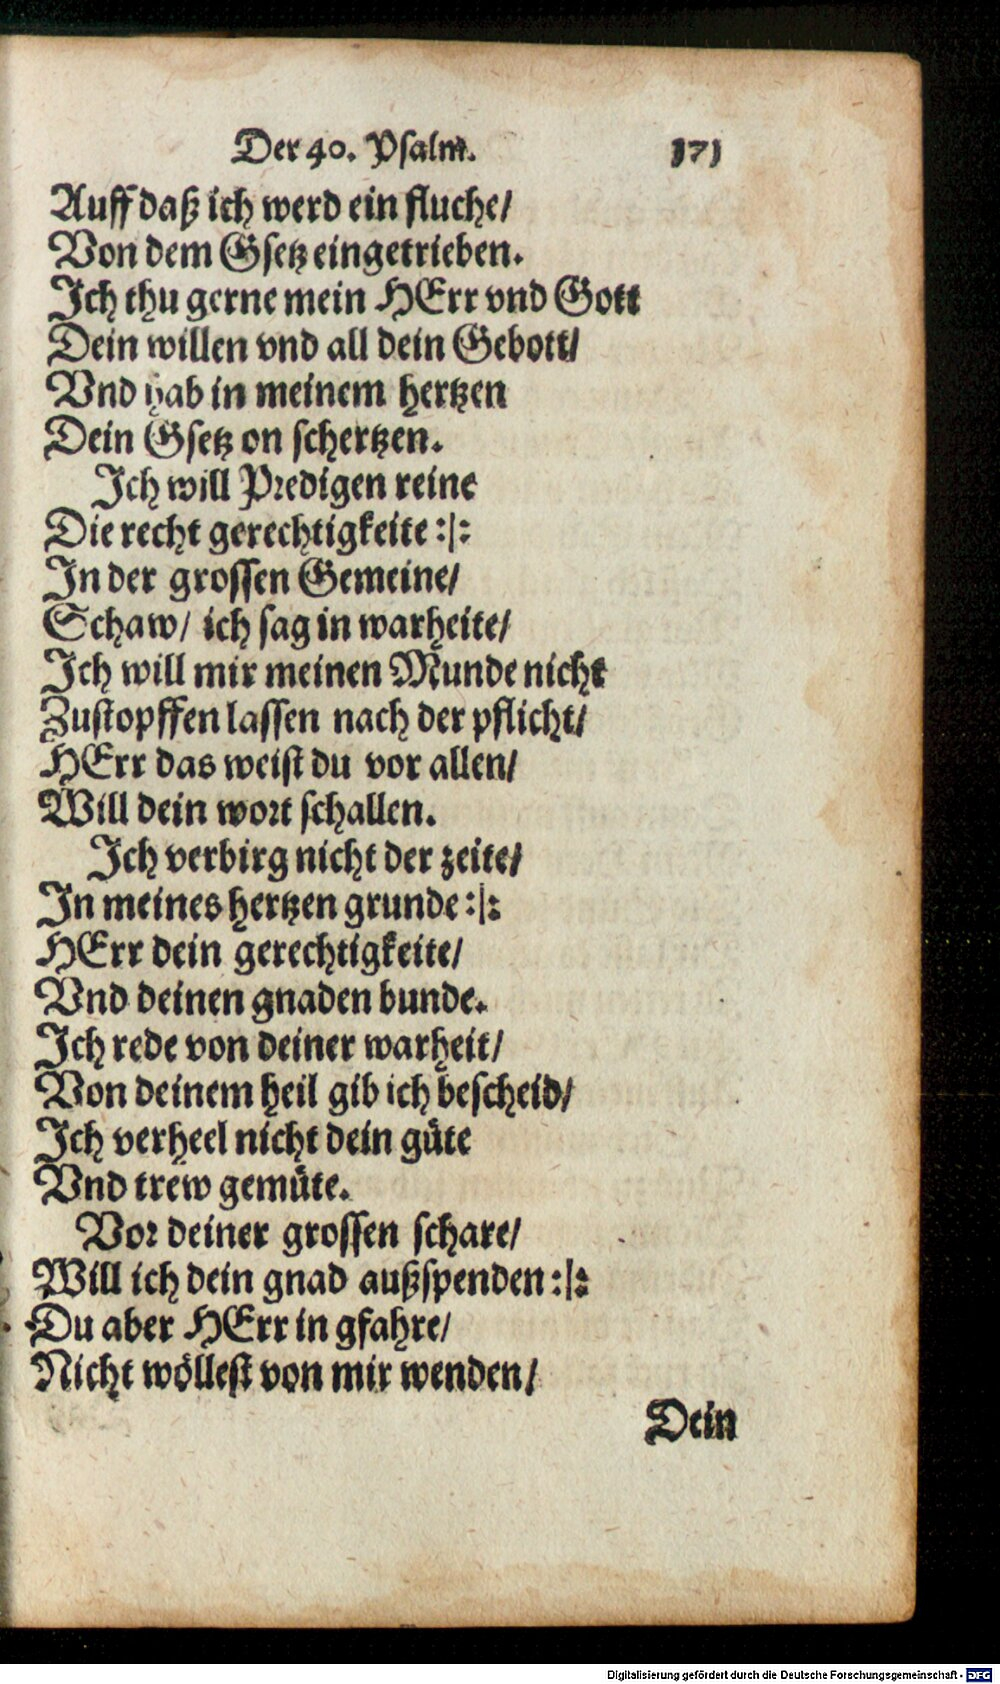 Der 40. Psalm. 171
Auff daß ich werd ein fluche/
Von dem Gsetz eingetrieben.
Ich thu gerne mein HErr vnd Gott
Dein willen vnd all dein Gebott/
Vnd hab in meinem hertzen
Dein Gsetz on schertzen.
Ich will Predigen reine
Die recht gerechtigkeite :|:
In der grossen Gemeine/
Schaw/ ich sag in warheite/
Ich will mir meinen Munde nicht
Zustopffen lassen nach der pflicht/
HErr das weist du vor allen/
Will dein wort schallen.
Ich verbirg nicht der zeite/
In meines hertzen grunde :|:
HErr dein gerechtigkeite/
Vnd deinen gnaden bunde.
Ich rede von deiner warheit/
Von deinem heil gib ich bescheid/
Ich verheel nicht dein güte
Vnd trew gemüte.
Vor deiner grossen schare/
Will ich dein gnad außspenden :|:
Du aber HErr in gfahre/
Nicht wöllest von mir wenden/
Dein
Digitalisierung gefördert durch die Deutsche Forschungsgemeinschaft - DFG